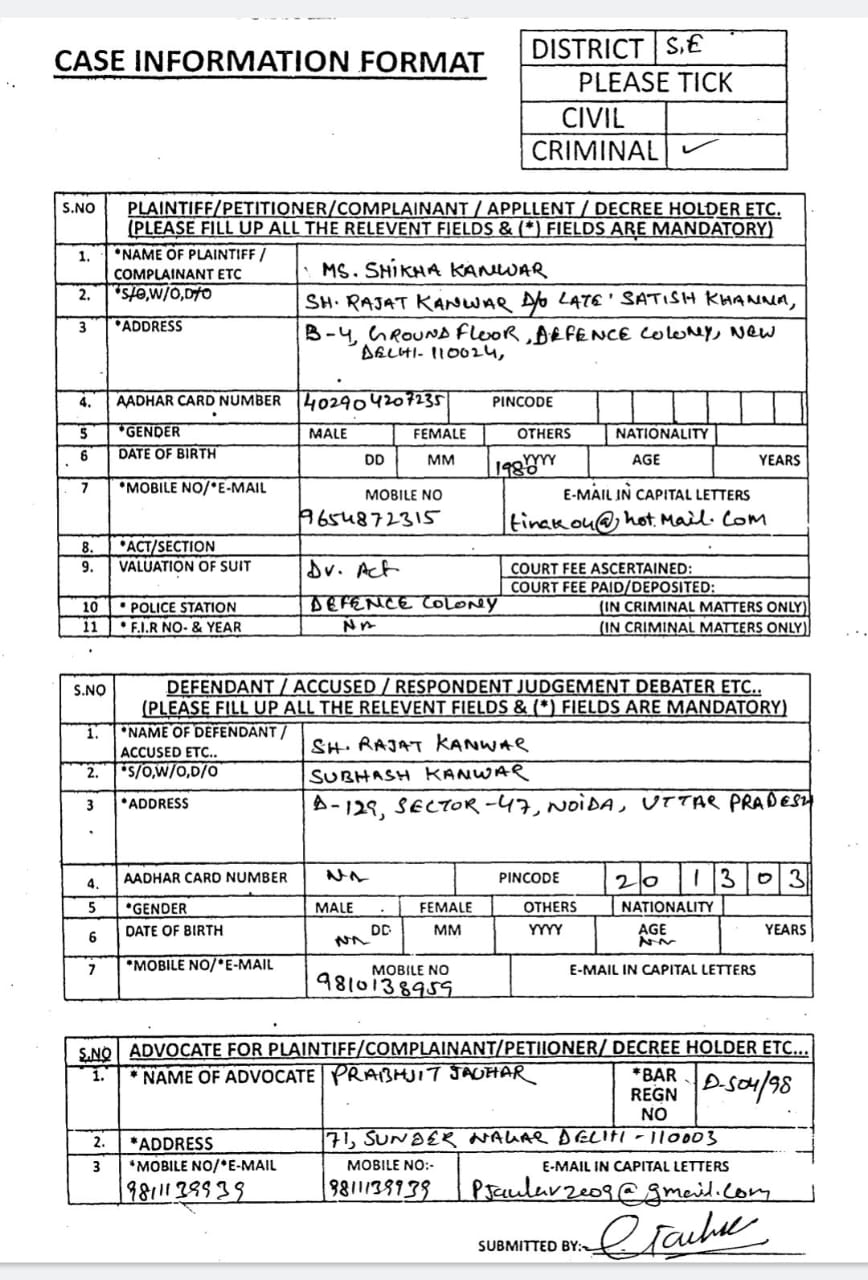 CASE INFORMATION FORMAT
DISTRICT S.E
PLEASE TICK
CIVIL
CRIMINAL ✓
S.NO PLAINTIFF/PETITIONER/COMPLAINANT / APPLLENT / DECREE HOLDER ETC.
(PLEASE FILL UP ALL THE RELEVENT FIELDS & (*) FIELDS ARE MANDATORY)
1. *NAME OF PLAINTIFF /
COMPLAINANT ETC MS. SHIKHA KANWAR
2. *S/O,W/O,D/O SH. RAJAT KANWAR D/o LATE SATISH KHANNA,
3 *ADDRESS B-4, GROUND FLOOR, DEFENCE COLONY, NEW
DELHI- 110024,
4. AADHAR CARD NUMBER 402904207235 PINCODE
5 *GENDER MALE FEMALE OTHERS NATIONALITY
6 DATE OF BIRTH DD MM 1980 YYYY AGE YEARS
7 *MOBILE NO/*E-MAIL MOBILE NO E-MAIL IN CAPITAL LETTERS
9654872315 tinakou@hot.mail.com
8. *ACT/SECTION
9. VALUATION OF SUIT DV. Act COURT FEE ASCERTAINED:
COURT FEE PAID/DEPOSITED:
10 * POLICE STATION DEFENCE COLONEY (IN CRIMINAL MATTERS ONLY)
11 * F.I.R NO- & YEAR NA (IN CRIMINAL MATTERS ONLY)
S.NO DEFENDANT / ACCUSED / RESPONDENT JUDGEMENT DEBATER ETC..
(PLEASE FILL UP ALL THE RELEVENT FIELDS & (*) FIELDS ARE MANDATORY)
1. *NAME OF DEFENDANT /
ACCUSED ETC.. SH. RAJAT KANWAR
2. *S/O,W/O,D/O SUBHASH KANWAR
3 *ADDRESS D-129, SECTOR-47, NOIDA, UTTAR PRADESH
4. AADHAR CARD NUMBER NA PINCODE 201303
5 *GENDER MALE FEMALE OTHERS NATIONALITY
6 DATE OF BIRTH NA DD MM YYYY AGE NA YEARS
7 *MOBILE NO/*E-MAIL MOBILE NO E-MAIL IN CAPITAL LETTERS
9810138959
S.NO ADVOCATE FOR PLAINTIFF/COMPLAINANT/PETIIONER/ DECREE HOLDER ETC...
1. * NAME OF ADVOCATE PRABHJIT JAUHAR *BAR REGN NO D-504/98
2. *ADDRESS 71, SUNDER NAGAR DELHI - 110003
3 *MOBILE NO/*E-MAIL MOBILE NO:- E-MAIL IN CAPITAL LETTERS
9811139939 9811139939 Pjauhar2009@gmail.com
SUBMITTED BY:-